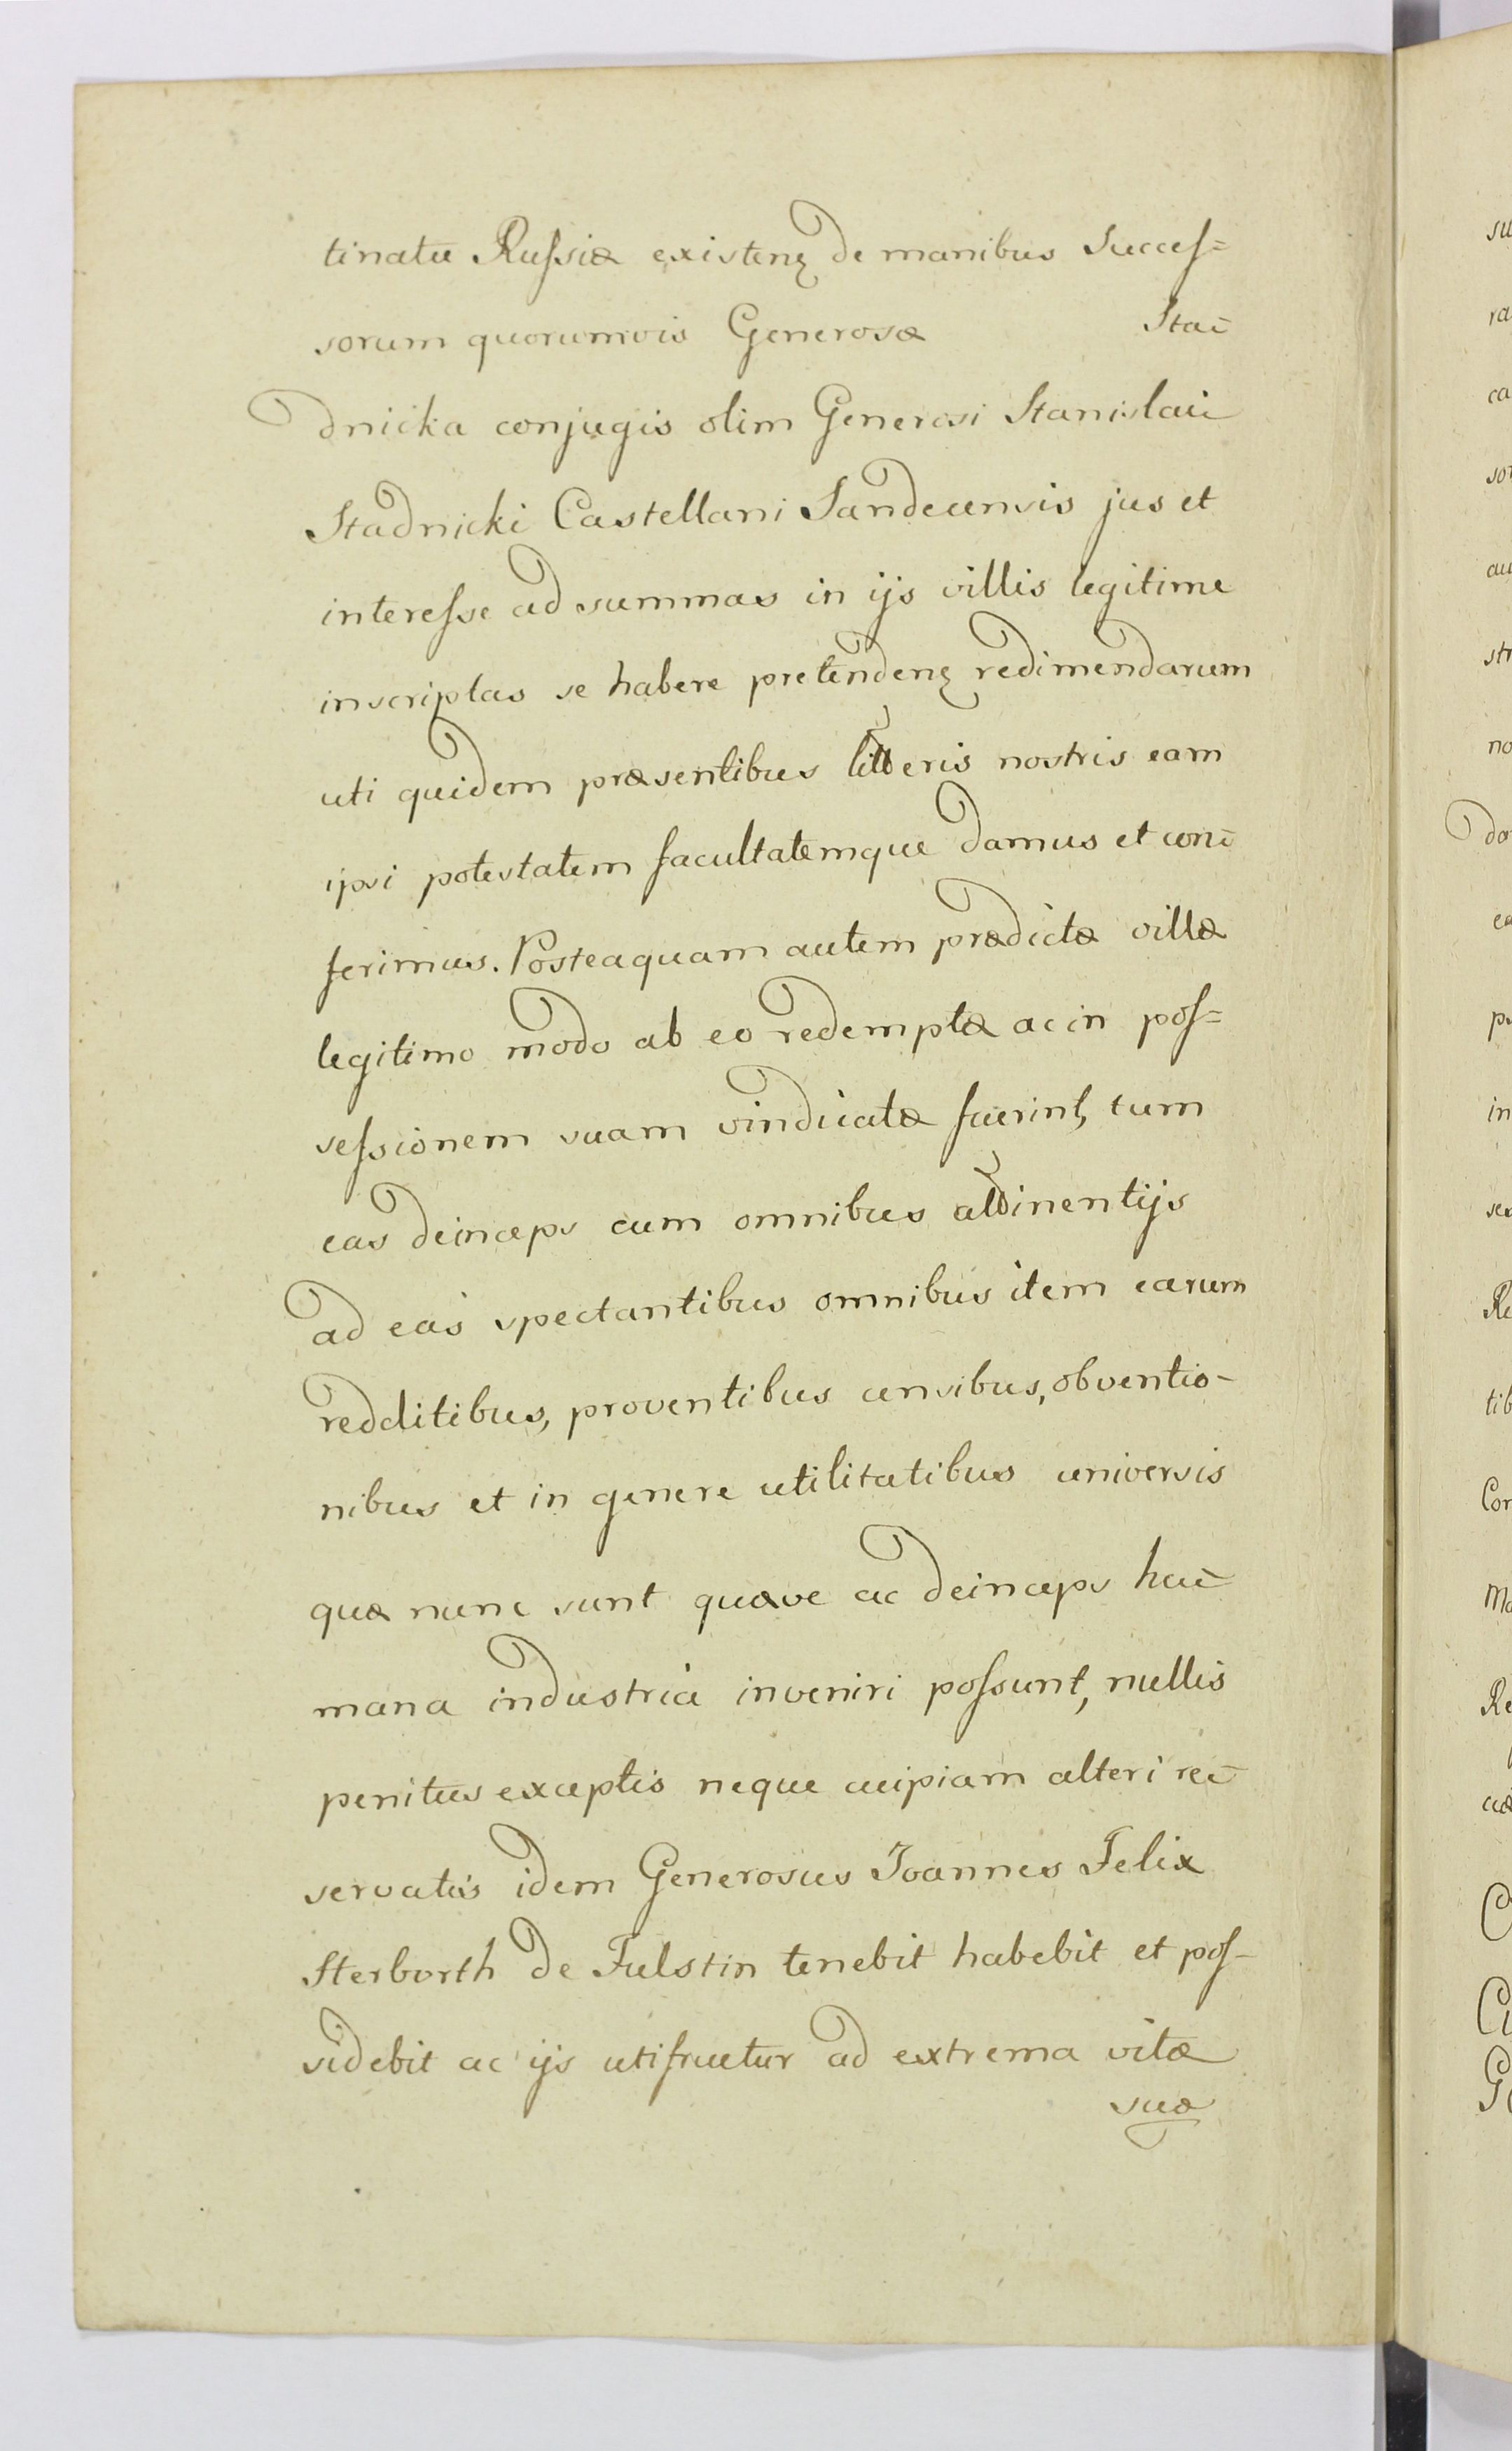 tinatu Russiæ existenȩ de manibus Succes=
sorum quorumvis Generosæ Sta=
dnicka conjugis olim Generosi Stanislai
Stadnicki Castellani Sandecensis jus et
interesse ad summas in ijs villis legitime
inscriptas se habere pretendenȩ redimendarum
uti quidem præsentibus litteris nostris eam
ipsi potestatem facultatemque damus et con=
ferimus. Posteaquam autem prædictæ villæ
legitimo modo ab eo redemptæ ac in pos=
sessionem suam vindicatæ fuerint, tum
eas deinceps cum omnibus attinentijs
ad eas spectantibus omnibus item earum
redditibus, proventibus censibus, obventio-
nibus et in genere utilitatibus universis
quæ nunc sunt quæve ac deinceps hu=
mana industria inveniri possunt, nullis
penitus exceptis neque cuipiam alteri re=
servatis idem Generosus Joannes Felix
Sterborth de Fulstin tenebit habebit et pos-
sidebit ac ijs utifruetur ad extrema vitæ
suæ